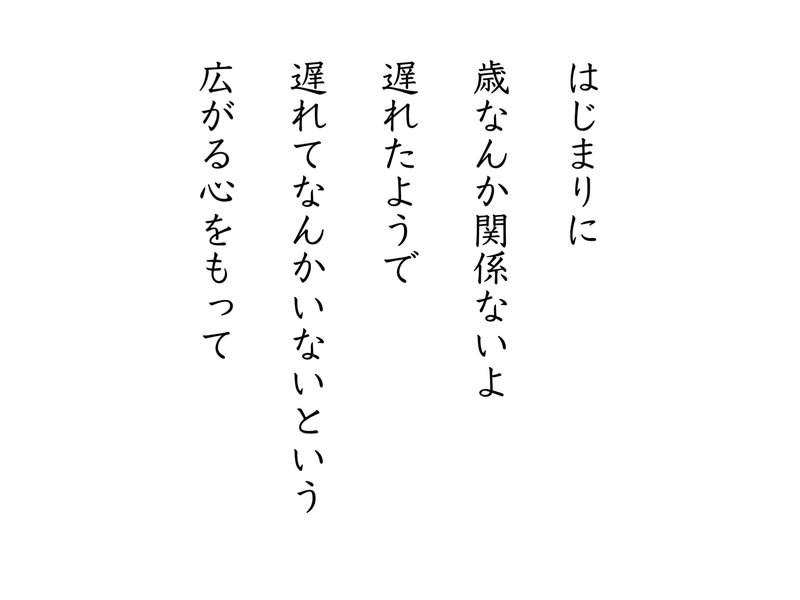 はじまりに
歳なんか関係ないよ
遅れたようで
遅れてなんかいないという
広がる心をもって